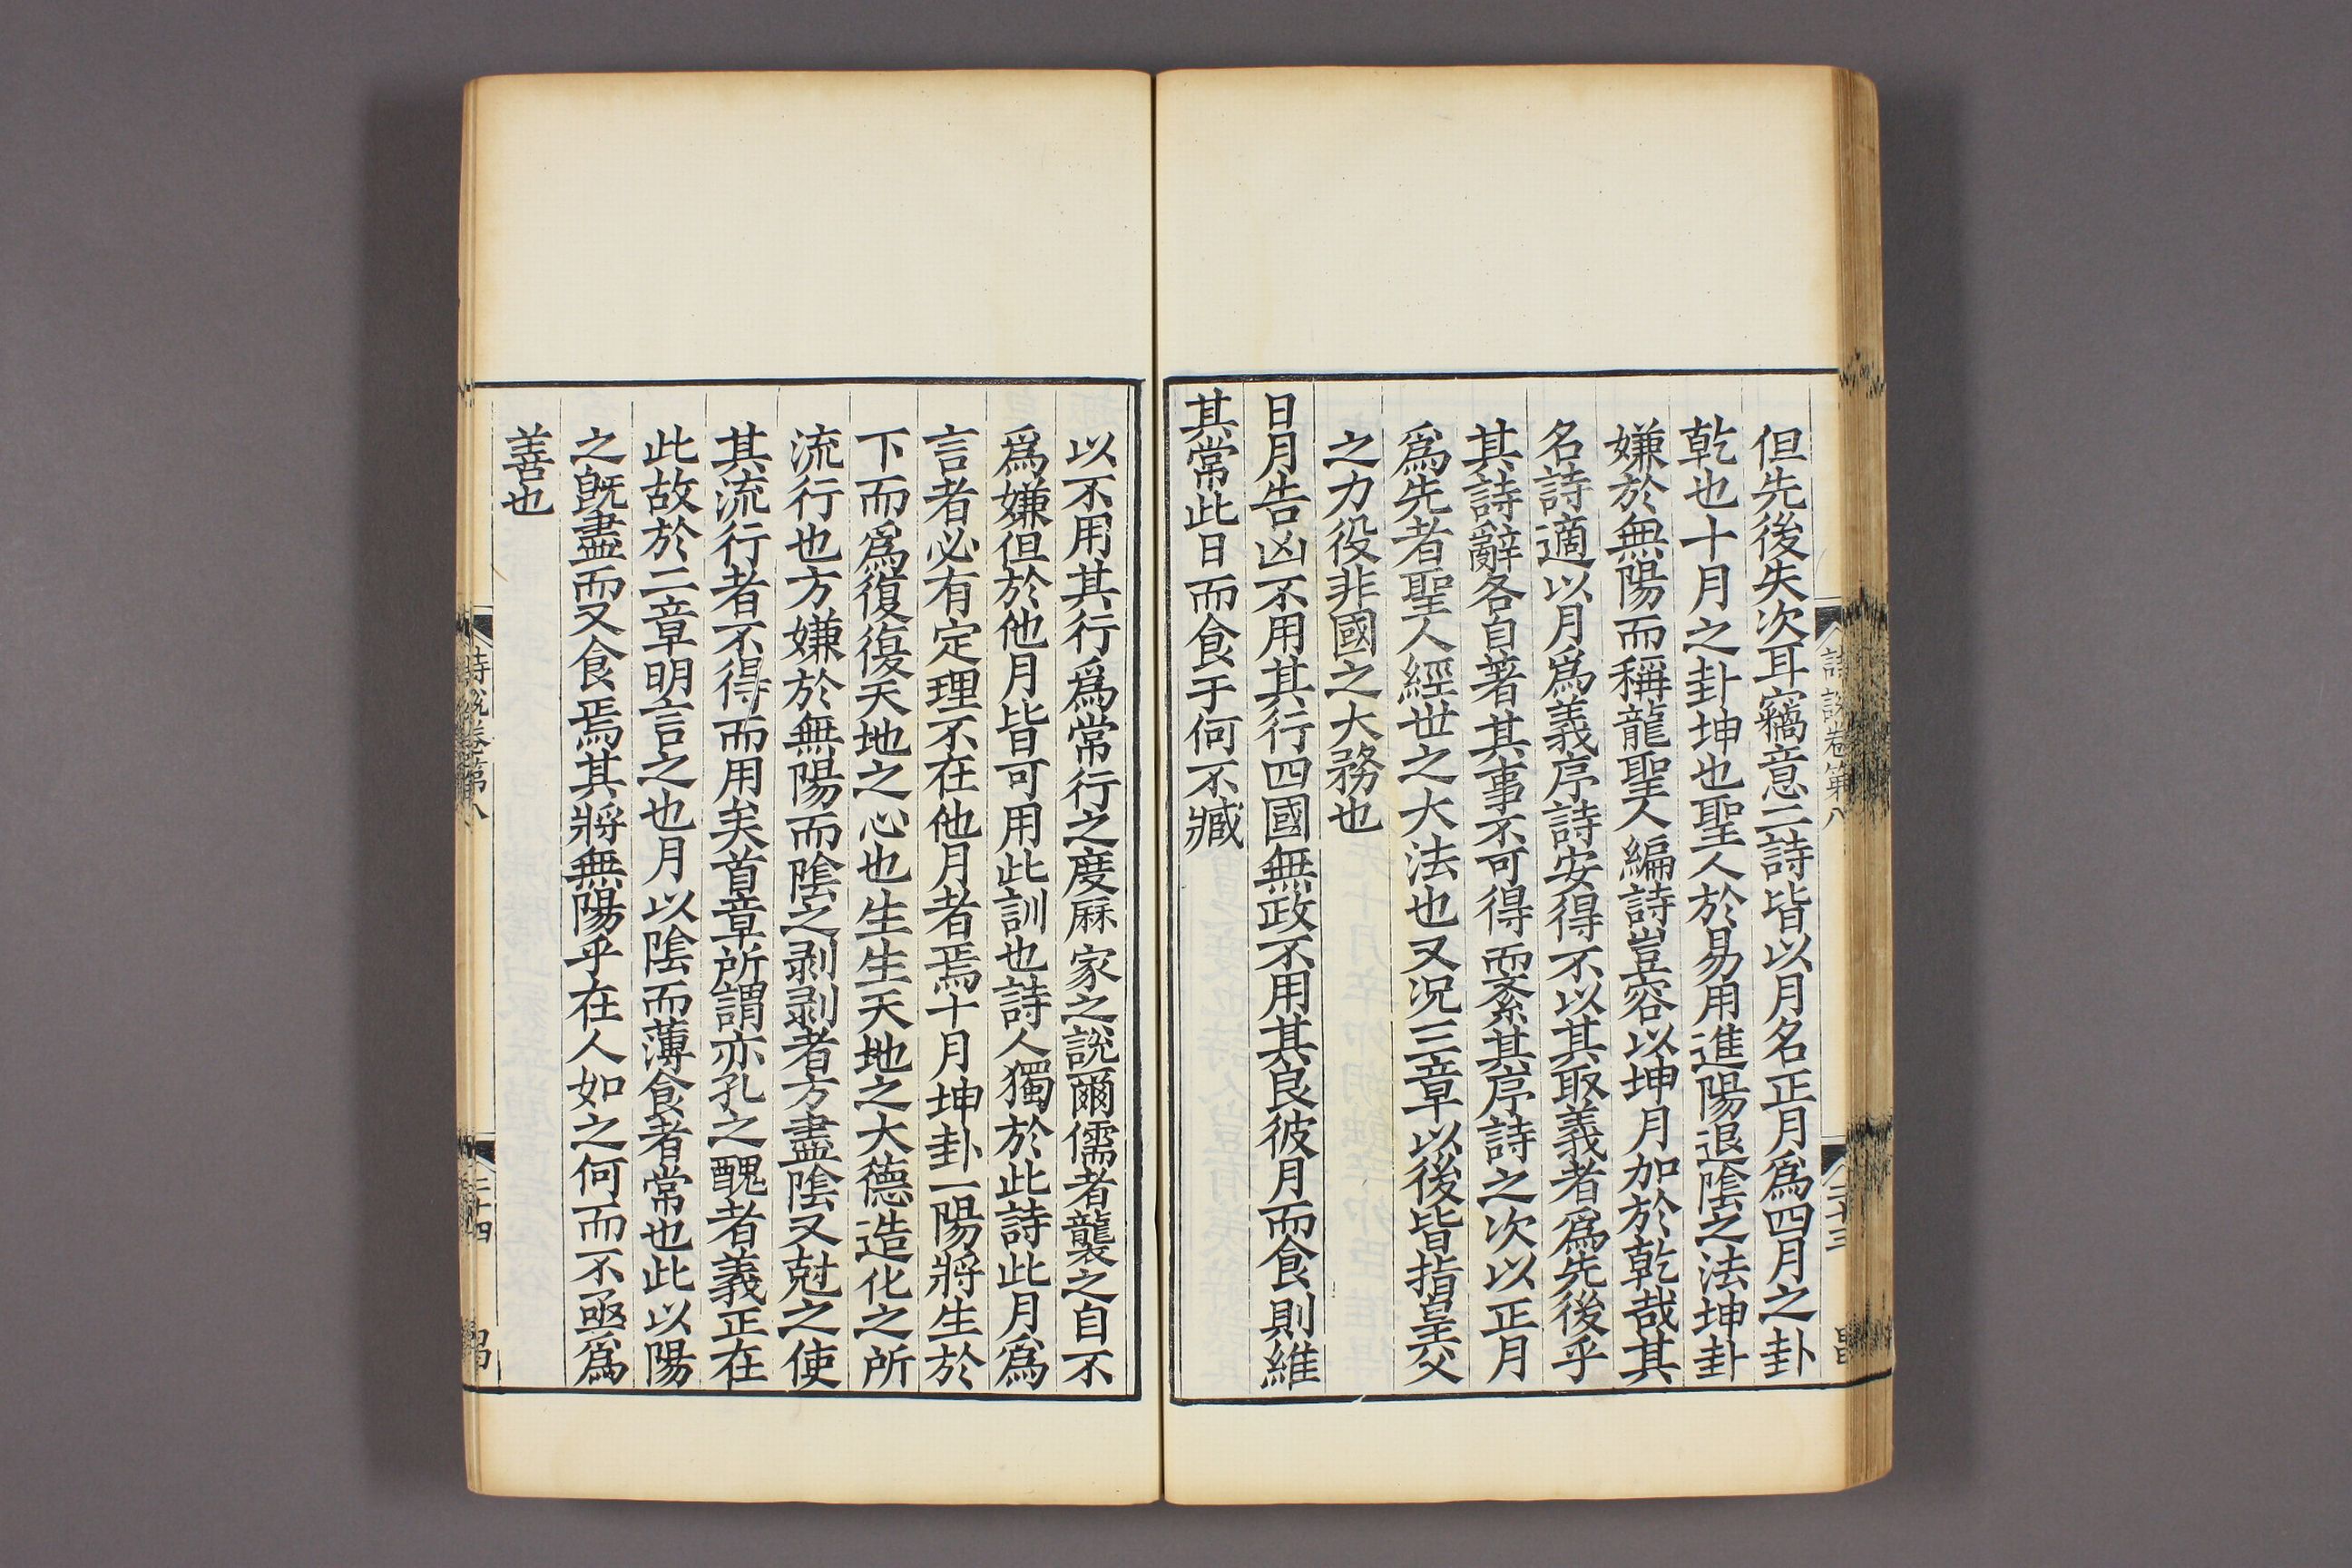 詩說卷第八
二十三
但先後失次耳竊意三詩皆以月名正月爲四月之卦
乾也十月之卦坤也聖人於易用進陽退陰之法坤卦
嫌於無陽而稱龍聖人編詩豈容以坤月加於乾哉其
名詩適以月爲義序詩安得不以其取義者爲先後乎
其詩辭各自著其事不可得而紊其序詩之次以正月
爲先者聖人經世之大法也又況三章以後皆指皇父
之力役非國之大務也
日月告凶不用其行四國無政不用其良彼月而食則維
其常此日而食于何不臧
以不用其行爲常行之度厤家之說爾儒者襲之自不
爲嫌但於他月皆可用此訓也詩人獨於此詩此月爲
言者必有定理不在他月者焉十月坤卦一陽將生於
下而爲復復天地之心也生生天地之大德造化之所
流行也方嫌於無陽而陰之剥剥者方盡陰又尅之使
其流行者不得而用矣首章所謂亦孔之醜者義正在
此故於二章明言之也月以陰而薄食者常也此以陽
之旣盡而又食焉其將無陽乎在人如之何而不亟爲
善也
詩說卷第八
二十四